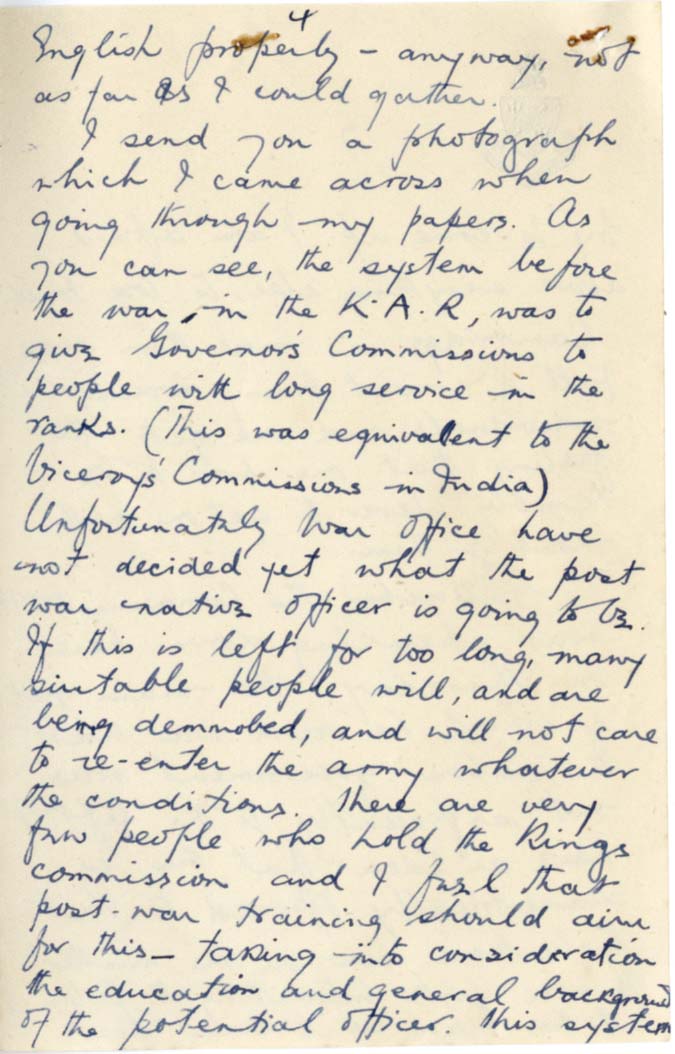 4
English properly - anyway, not
as far as I could gather.
I send you a photograph
which I came across when
going through my papers. As
you can see, the system before
the war, in the K.A.R, was to
give Governor's Commissions to
people with long service in the
ranks. (This was equivalent to the
Viceroy's Commissions in India)
Unfortunately War Office have
not decided yet what the post
war native officer is going to be.
If this is left for too long, many
suitable people will, and are
being demmobed, and will not care
to re-enter the army whatever
the conditions. There are very
few people who hold the Kings
commission and I feel that
post-war training should aim
for this - taking into consideration
the education and general background
of the potential officer. This system